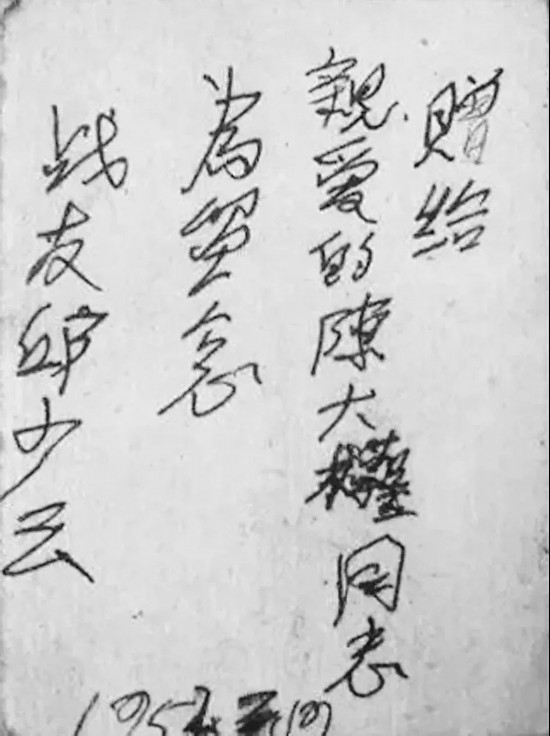 贈給
親愛的陳大權同志
為留念
战友邱少云